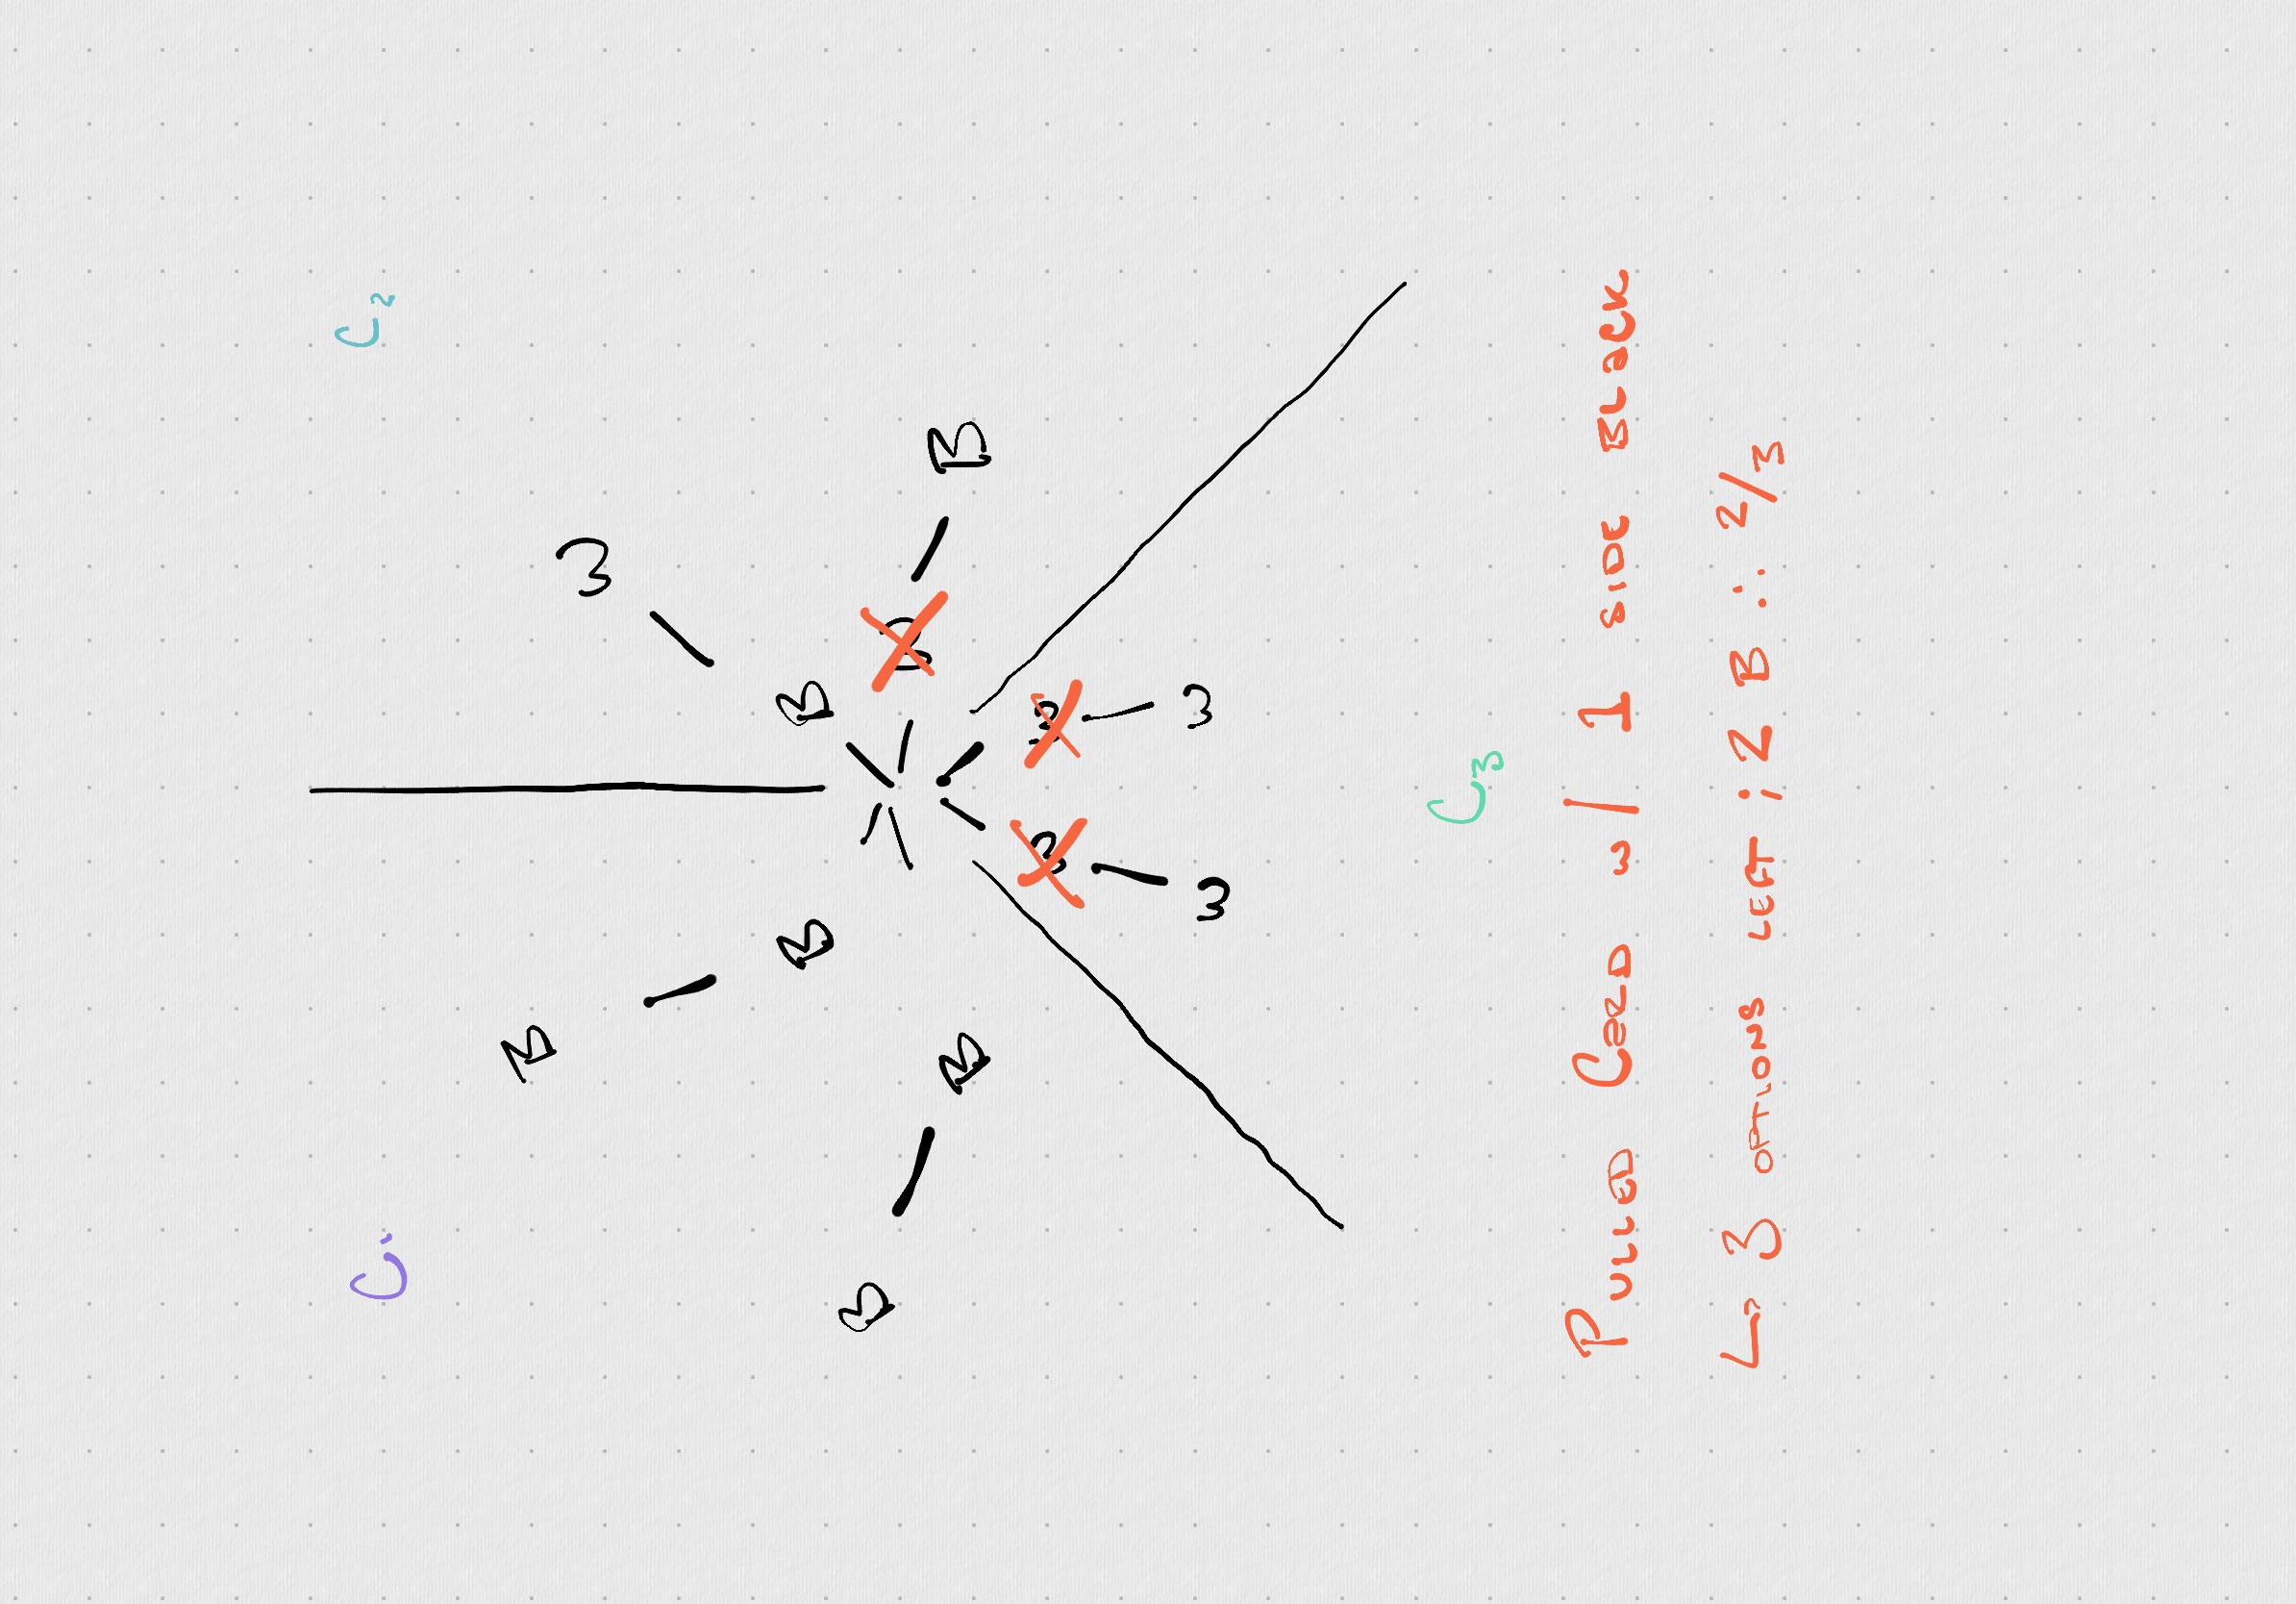 C1
C2
B
W
B
B
B
B
W
B
B
W
W
W
W
C3
PULLED CARD W/ 1 SIDE BLACK
↳ 3 OPTIONS LEFT ; 2 B ∴ 2/3